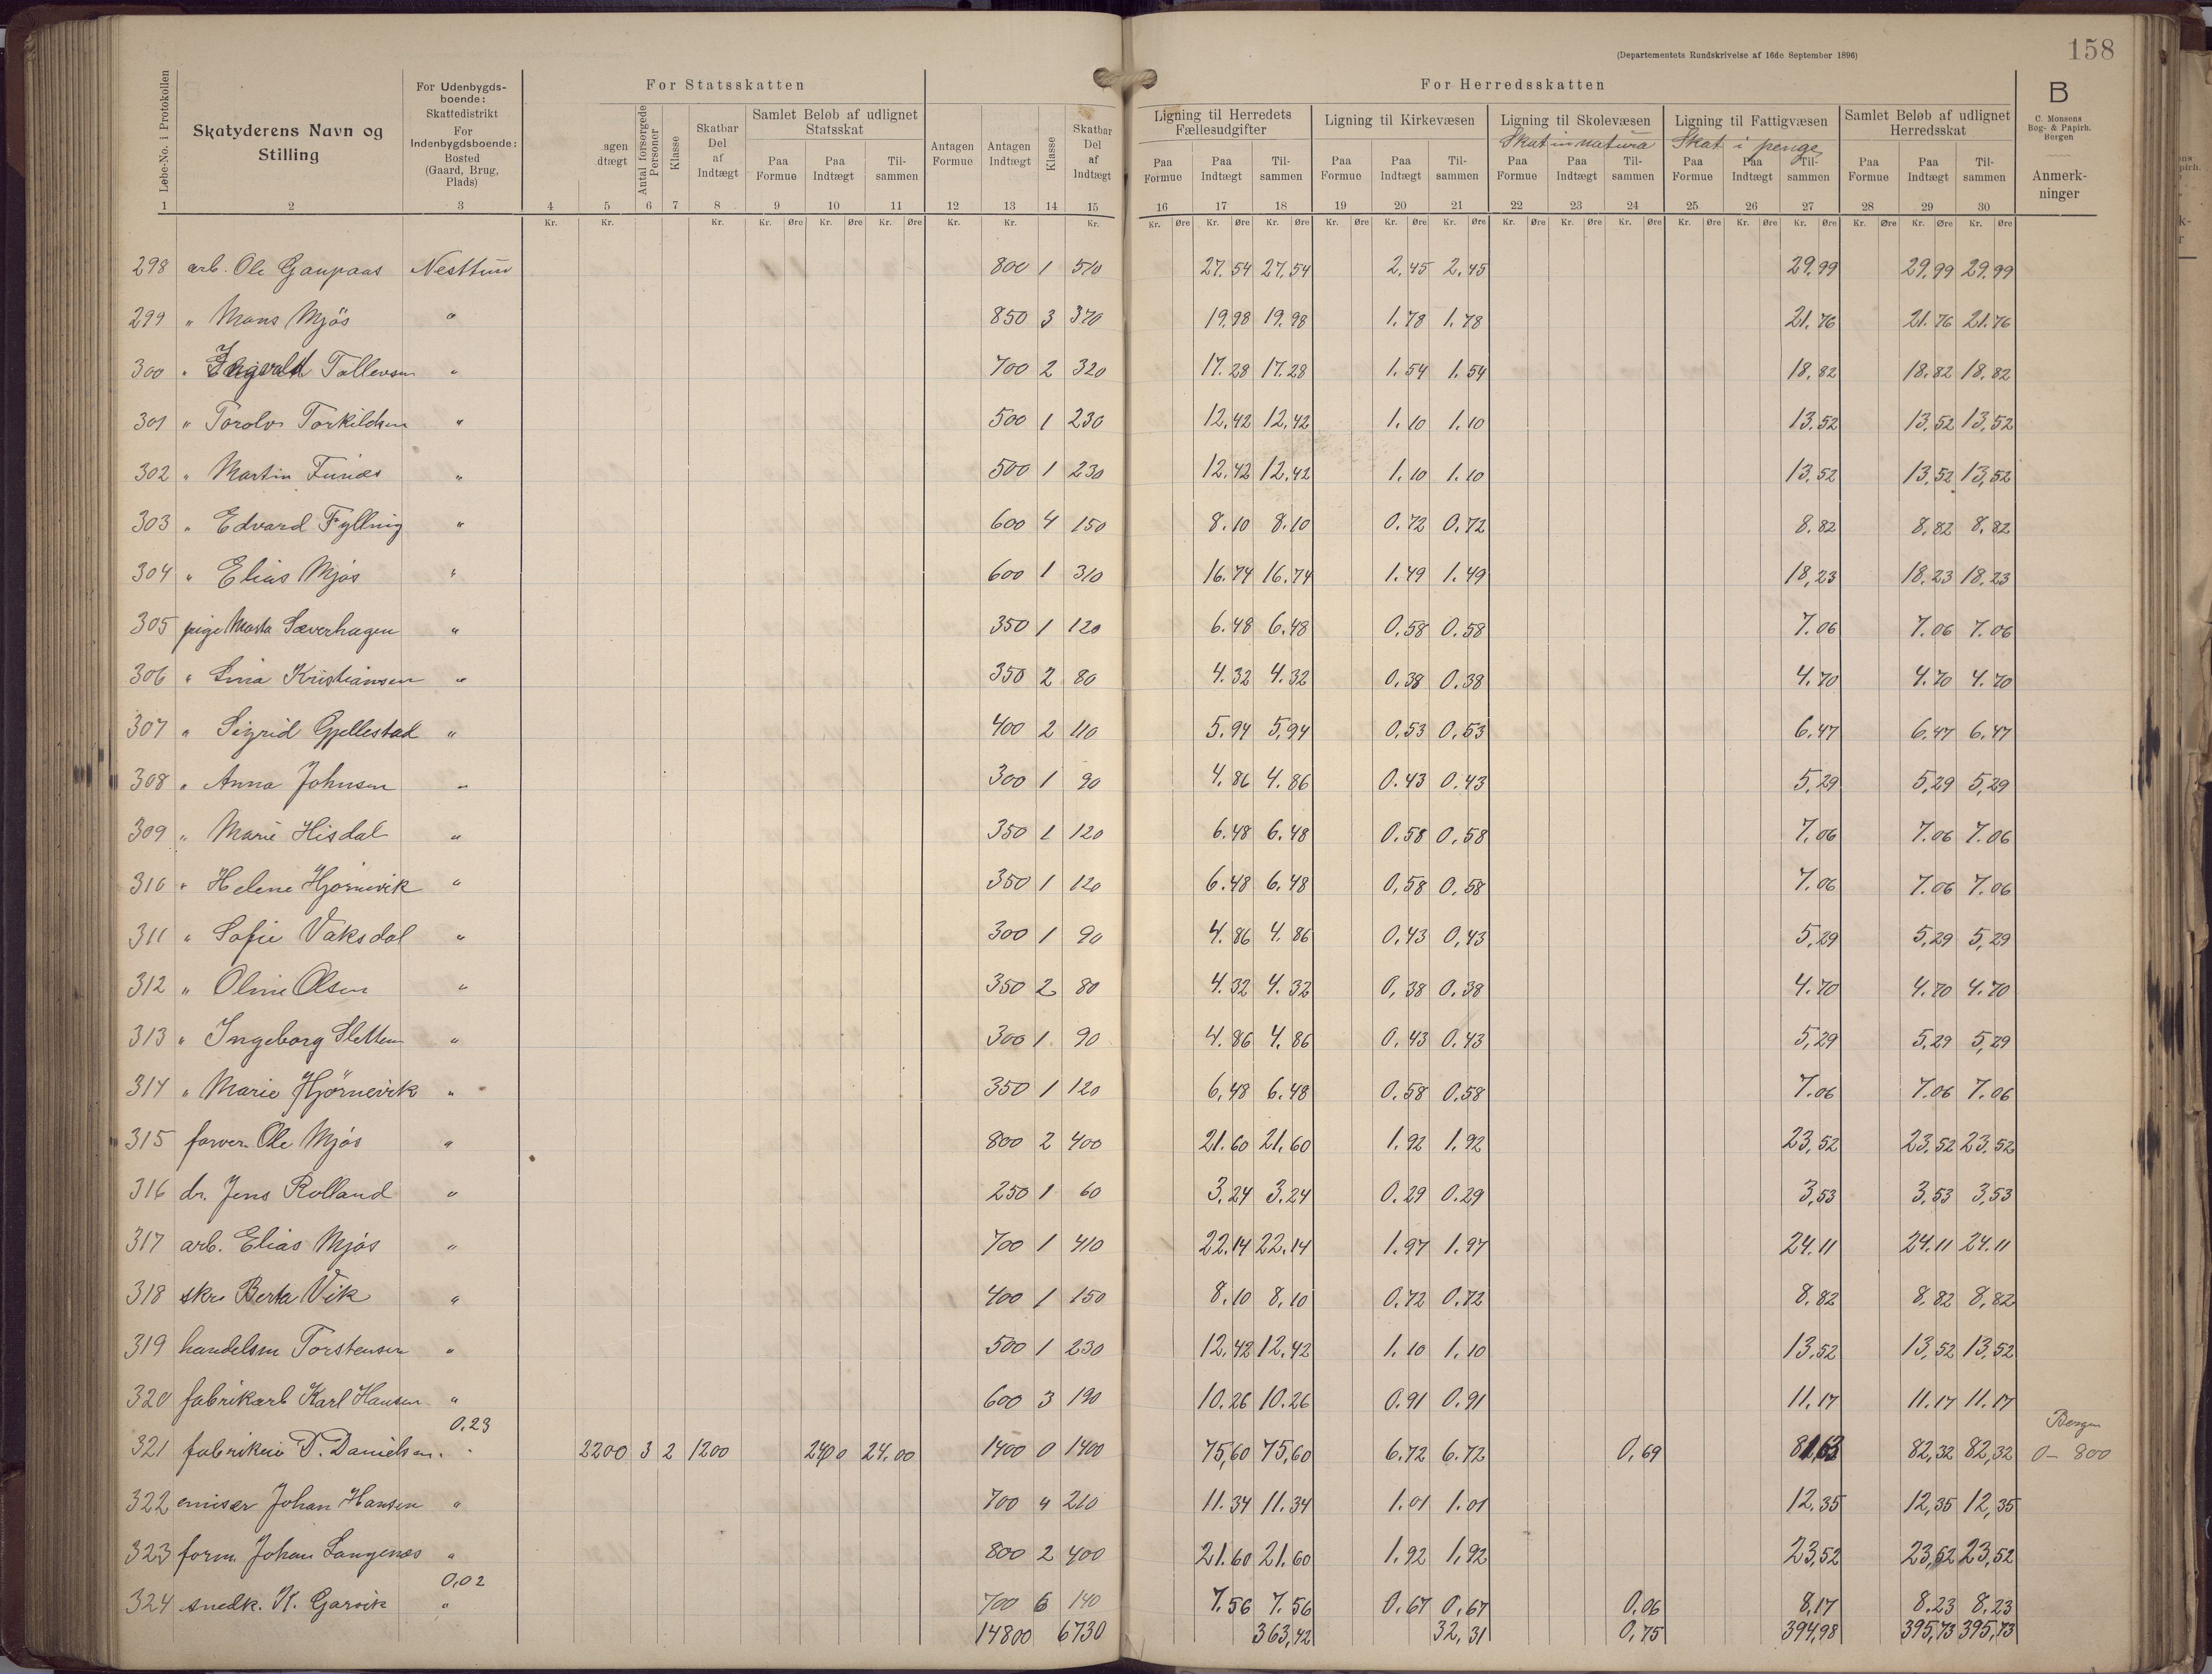 (Departementets Rundskrivelse af 16de September 1896)
158
Løbe-No. i Protokollen
Skatyderens Navn og Stilling
For Udenbygdsboende: Skattedistrikt For Indenbygdsboende: Bosted (Gaard, Brug, Plads)
For Statsskatten
agen dtægt
Antal forsørgede Personer
Klasse
Skatbar Del af Indtægt
Samlet Beløb af udlignet Statsskat
Paa Formue Paa Indtægt Tilsammen
Antagen Formue
Antagen Indtægt
Klasse
Skatbar Del af Indtægt
For Herredsskatten
Ligning til Herredets Fællesudgifter
Paa Formue Paa Indtægt Tilsammen
Ligning til Kirkevæsen
Paa Formue Paa Indtægt Tilsammen
Ligning til Skolevæsen
Skat in natura
Paa Formue Paa Indtægt Tilsammen
Ligning til Fattigvæsen
Skat i penge
Paa Formue Paa Indtægt Tilsammen
Samlet Beløb af udlignet Herredsskat
Paa Formue Paa Indtægt Tilsammen
B
C. Monsens Bog- & Papirh. Bergen
Anmerkninger
1 2 3 4 5 6 7 8 9 10 11 12 13 14 15 16 17 18 19 20 21 22 23 24 25 26 27 28 29 30
Kr. Kr. Kr. Kr. Øre Kr. Øre Kr. Øre Kr. Kr. Kr. Kr. Øre Kr. Øre Kr. Øre Kr. Øre Kr. Øre Kr. Øre Kr. Øre Kr. Øre Kr. Øre Kr. Øre Kr. Øre Kr. Øre Kr. Øre Kr. Øre Kr. Øre
298 arb. Ole Gaupaas Nesttun 800 1 510 27.54 27.54 2.45 2.45 29.99 29.99 29.99
299 " Mons Mjös " 850 3 370 19.98 19.98 1.78 1.78 21.76 21.76 21.76
300 " Ingvald Tollevsen " 700 2 320 17.28 17.28 1.54 1.54 18.82 18.82 18.82
301 " Torolv Torkildsen " 500 1 230 12.42 12.42 1.10 1.10 13.52 13.52 13.52
302 " Martin " 500 1 230 12.42 12.42 1.10 1.10 13.52 13.52 13.52
303 " Edvard Fylling " 600 4 150 8.10 8.10 0.72 0.72 8.82 8.82 8.82
304 " Elias Mjøs " 600 1 310 16.74 16.74 1.49 1.49 18.23 18.23 18.23
305 pige Marta Sæverhagen " 350 1 120 6.48 6.48 0.58 0.58 7.06 7.06 7.06
306 " Lina Kristiansen " 350 2 80 4.32 4.32 0.38 0.38 4.70 4.70 4.70
307 " Sigrid Gjellestad " 400 2 110 5.94 5.94 0.53 0.53 6.47 6.47 6.47
308 " Anna Johnsen " 300 1 90 4.86 4.86 0.43 0.43 5.29 5.29 5.29
309 " Marie Hisdal " 350 1 120 6.48 6.48 0.58 0.58 7.06 7.06 7.06
310 " Helene Hjørnevik " 350 1 120 6.48 6.48 0.58 0.58 7.06 7.06 7.06
311 " Sofie Vaksdal " 300 1 90 4.86 4.86 0.43 0.43 5.29 5.29 5.29
312 " Oline Olsen " 350 2 80 4.32 4.32 0.38 0.38 4.70 4.70 4.70
313 " Ingeborg Sletten " 300 1 90 4.86 4.86 0.43 0.43 5.29 5.29 5.29
314 " Marie Hjørnevik " 350 1 120 6.48 6.48 0.58 0.58 7.06 7.06 7.06
315 farver Ole Mjøs " 800 2 400 21.60 21.60 1.92 1.92 23.52 23.52 23.52
316 dr. Jens Rolland " 250 1 60 3.24 3.24 0.29 0.29 3.53 3.53 3.53
317 arb. Elias Mjøs " 700 1 410 22.14 22.14 1.97 1.97 24.11 24.11 24.11
318 skr. Berta Vik " 400 1 150 8.10 8.10 0.72 0.72 8.82 8.82 8.82
319 handelsm Torstensen " 500 1 230 12.42 12.42 1.10 1.10 13.52 13.52 13.52
320 fabrikarb Karl Hansen " 600 3 190 10.26 10.26 0.91 0.91 11.17 11.17 11.17
0.23 Bergen
321 fabrikeier D. Danielsen " 2200 3 2 1200 2400 24.00 1400 0 1400 75.60 75.60 6.72 6.72 0.69 81.63 82.32 82.32 0- 800
322 emisær Johan Hansen " 700 4 210 11.34 11.34 1.01 1.01 12.35 12.35 12.35
323 form. Johan Langenes " 800 2 400 21.60 21.60 1.92 1.92 23.52 23.52 23.52
0.02
324 snedk. K. Garvik " 700 6 140 7.56 7.56 0.67 0.67 0.06 8.17 8.23 8.23
14800 6730 363.42 32.31 0.75 394.98 395.73 395.73